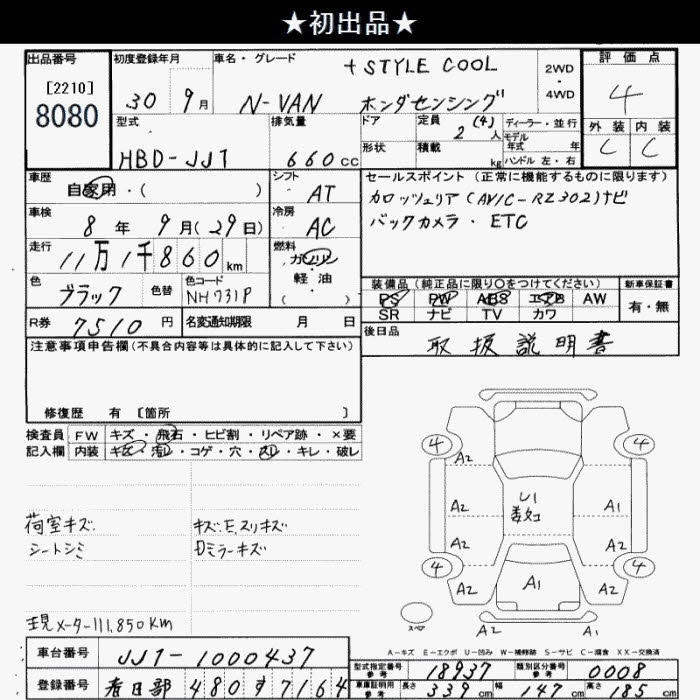 ★初出品★
出品番号
[2210]
8080
初度登録年月
30 9月
車名・グレード
+STYLE COOL
N-VAN ホンダセンシング
2WD
・
4WD
評価点
4
外装 内装
C C
型式
HBD-JJ1
排気量
660cc
ドア
定員 2(4)人
形状
積載 kg
ディーラー・並行
モデル年式 年
ハンドル 左・右
車歴
自家用・( )
シフト
AT
車検
8年 9月(29日)
冷房
AC
走行
11万1千860km
燃料
ガソリン
軽・油
( )
色
ブラック
色替
色コード
NH731P
R券 7510円
名変通知期限 月 日
セールスポイント(正常に機能するものに限ります)
カロッツェリア(AVIC-RZ302)ナビ
バックカメラ・ETC
装備品(純正品に限り〇をつけてください)
PS PW ABS エアB AW
SR ナビ TV カワ
新車保証書
有・無
後日品
取扱説明書
注意事項申告欄(不具合内容等は具体的に記入して下さい)
修復歴 有 〔箇所 〕
検査員記入欄
FW キズ・飛石・ヒビ割・リペア跡・×要
内装 キズ・汚レ・コゲ・穴・スレ・キレ・破レ
荷室キズ
シートシミ
キズ:E.スリキズ
Dミラーキズ
現メーター111,850km
4 4
A2
A2 A1
A2 A2
4 4
A2 A2
U1
A1
A2 A1
スペア
A-キズ E-エクボ U-凹み W-補修跡 S-サビ C-腐食 XX-交換済
車台番号 JJ1-1000437
登録番号 春日部 480す7164
型式指定番号 参考 18937
類別区分番号 参考 0008
車庫証明用 参考 長さ 339cm 幅 147cm 高さ 195cm